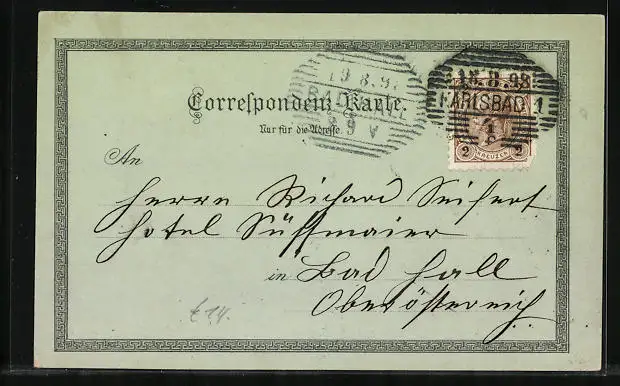 19.8.9
BAD HALL
18.8.98
KARLSBAD 1
Correspondenz-Karte.
Nur für die Adresse.
2 KREUZER 2
An
Herrn Richard Seifert
Hotel Süssmaier
in Bad Hall
Oberösterreich
€14.